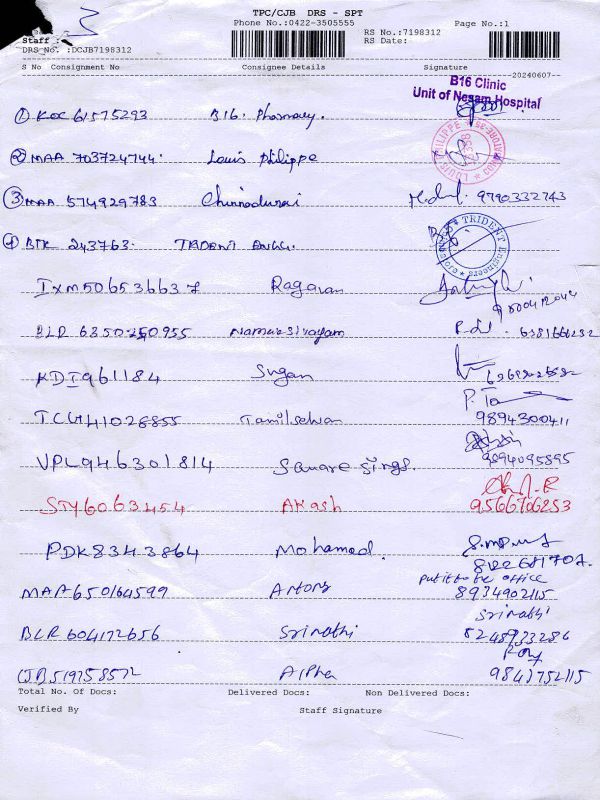 TPC/CJB DRS - SPT
Phone No.:0422-3505555 Page No.:1
Staff : RS No.:7198312
DRS No. :DCJB7198312 RS Date:
S No Consignment No Consignee Details Signature
20240607
B16 Clinic
Unit of Nesam Hospital
① KOC 61575293 B16. Pharmacy.
② MAA 703724744 Louis Philippe
LOUIS PHILIPPE
③ MAA 574929783 Chinnadurai 9790332743
④ BTK 243763. TRIDENT ENGG.
TRIDENT Engineers
IXM506536637 Ragavan
BLR 6350250955 Namasivayam
KDI961184 Sugan
TCG41028855 Tamilselvan P. Ta
9894300411
VPL946301814 Square Sings. 9894095895
STY6063454 Akash 9566706253
PDK8343864 Mohamed.
MAA650164599 Antony put it to the office
8934902115
BLR604172656 Srinathi Srinathi
8248933286
CJB519758572 Alpha Roy
9841752115
Total No. Of Docs: Delivered Docs: Non Delivered Docs:
Verified By Staff Signature